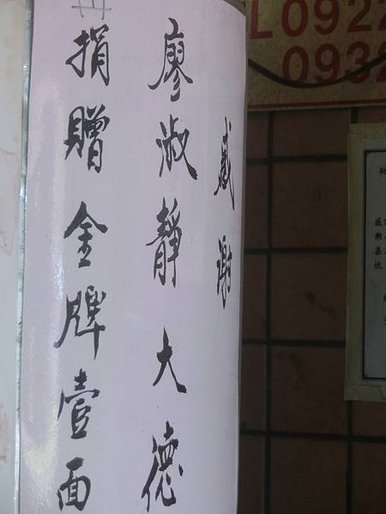 感謝
廖淑靜大德
捐贈金牌壹面
L0922
0932